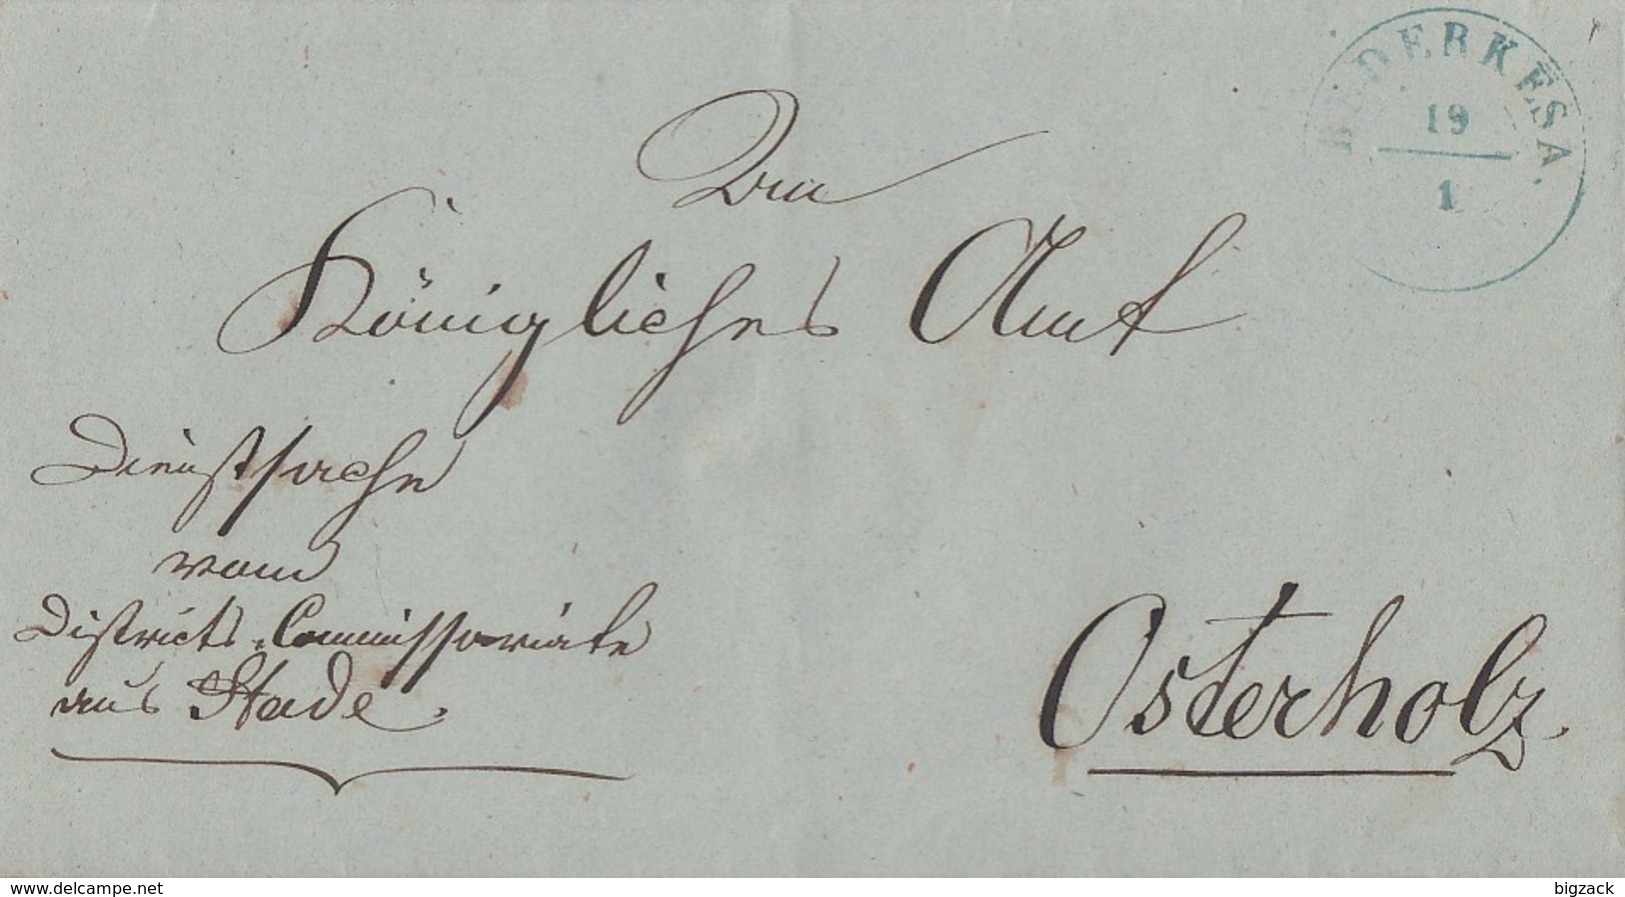 BEDERKESA.
19
1
Dem
Königliches Amt
Dienstsache
vom
Districts-Commissariate
aus Stade.
Osterholz.
www.delcampe.net
bigzack